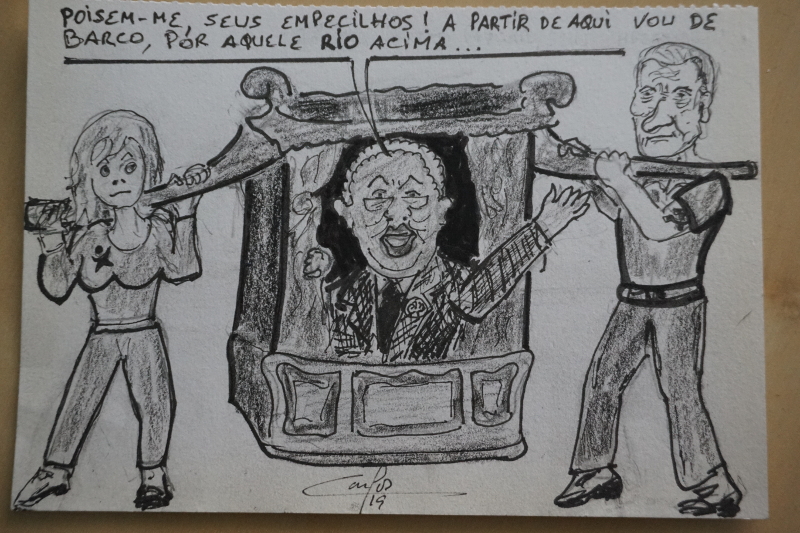 POISEM-ME, SEUS EMPECILHOS! A PARTIR DE AQUI VOU DE
BARCO, PÓR AQUELE RIO ACIMA...
Carlos
19